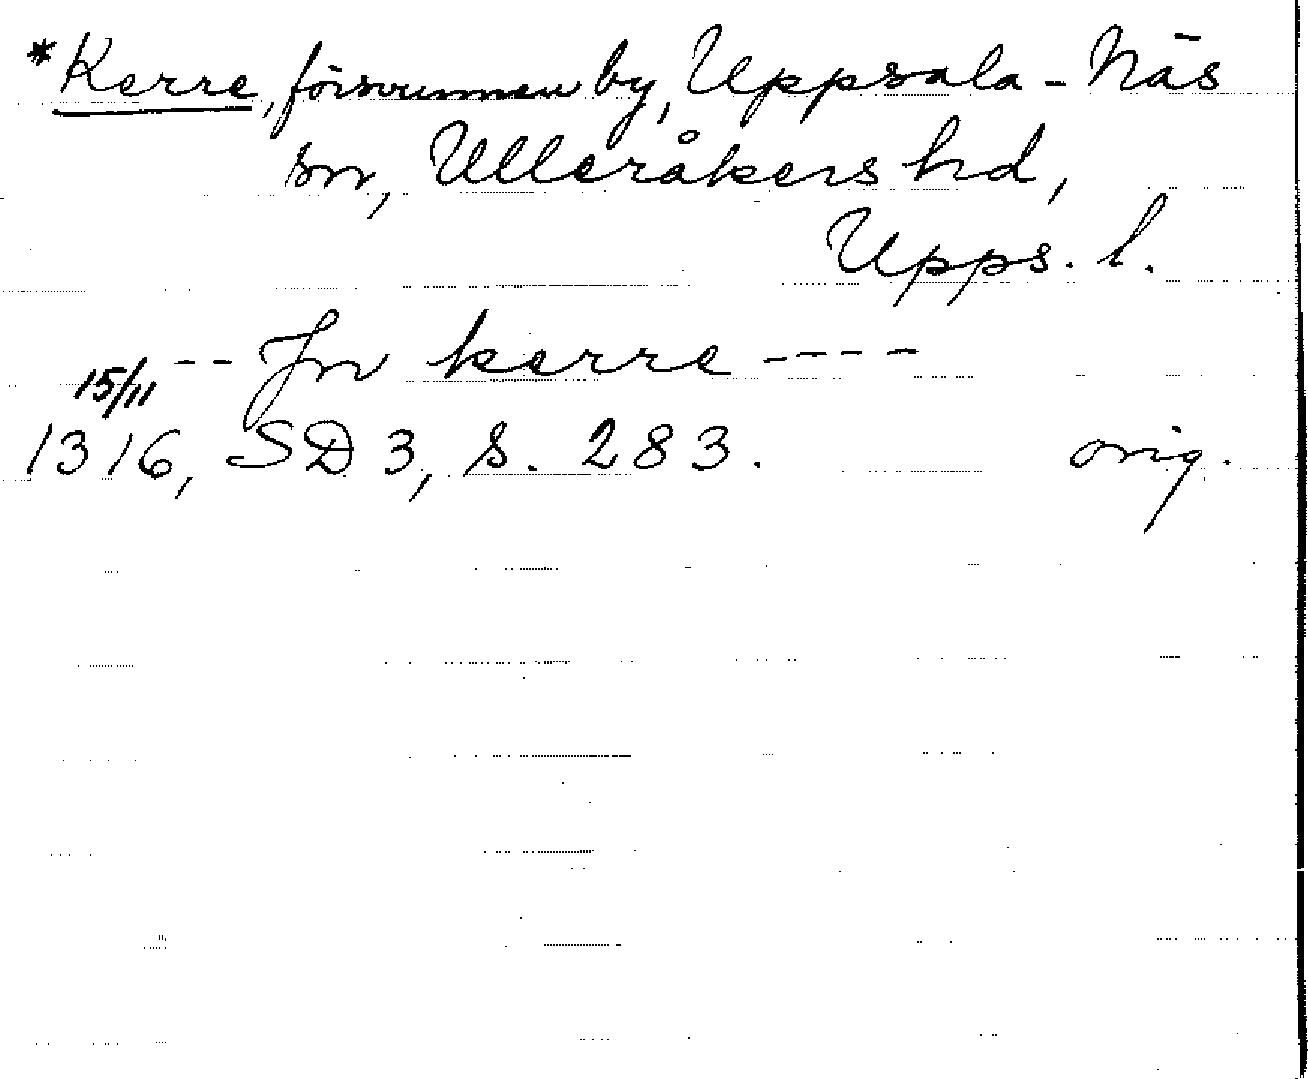 *Kerre, försvunnen by, Uppsala-Näs
sn, Ulleråkers hd,
Upps. l.
-- Jn kerre ----
15/11
1316, SD 3, s. 283. orig.